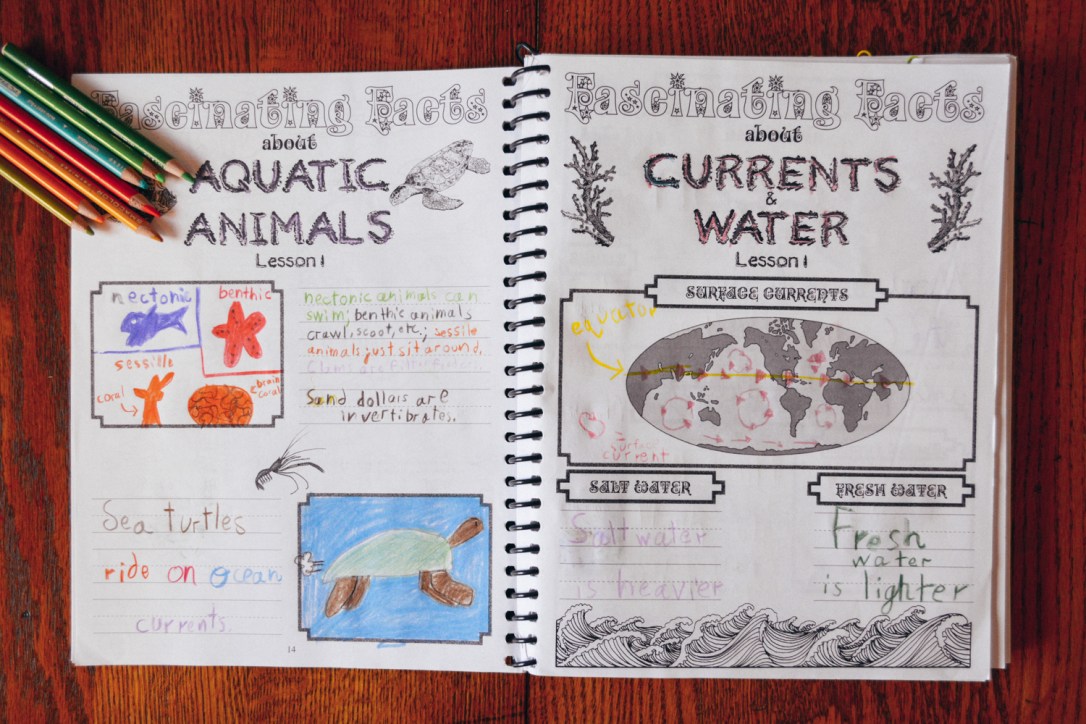 Fascinating Facts
about
AQUATIC
ANIMALS
Lesson 1
nectonic
benthic
sessille
coral
brain
coral
nectonic animals can
swim; benthic animals
crawl, scoot, etc.; sessile
animals just sit around.
Sand dollars are
invertibrates.
Sea turtles
ride on ocean
currents.
14
Fascinating Facts
about
CURRENTS
&
WATER
Lesson 1
SURFACE CURRENTS
equator
surface
current
SALT WATER
Salt water
is heavier
FRESH WATER
Fresh
water
is lighter